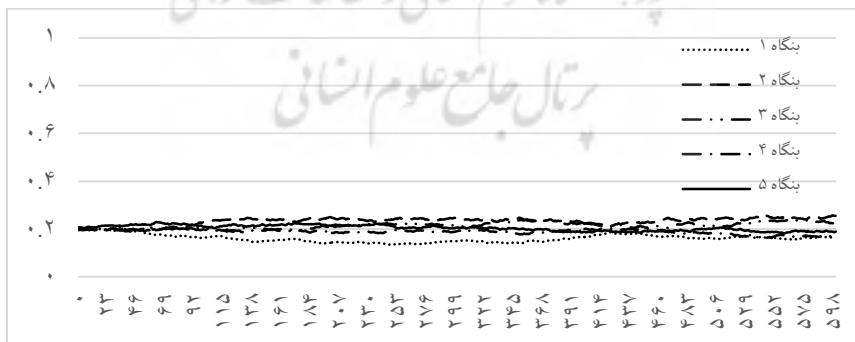 پرتال جامع علوم انسانی
۱
۰.۸
۰.۶
۰.۴
۰.۲
۰
بنگاه ۱
بنگاه ۲
بنگاه ۳
بنگاه ۴
بنگاه ۵
۰ ۲۳ ۴۶ ۶۹ ۹۲ ۱۱۵ ۱۳۸ ۱۶۱ ۱۸۴ ۲۰۷ ۲۳۰ ۲۵۳ ۲۷۶ ۲۹۹ ۳۲۲ ۳۴۵ ۳۶۸ ۳۹۱ ۴۱۴ ۴۳۷ ۴۶۰ ۴۸۳ ۵۰۶ ۵۲۹ ۵۵۲ ۵۷۵ ۵۹۸